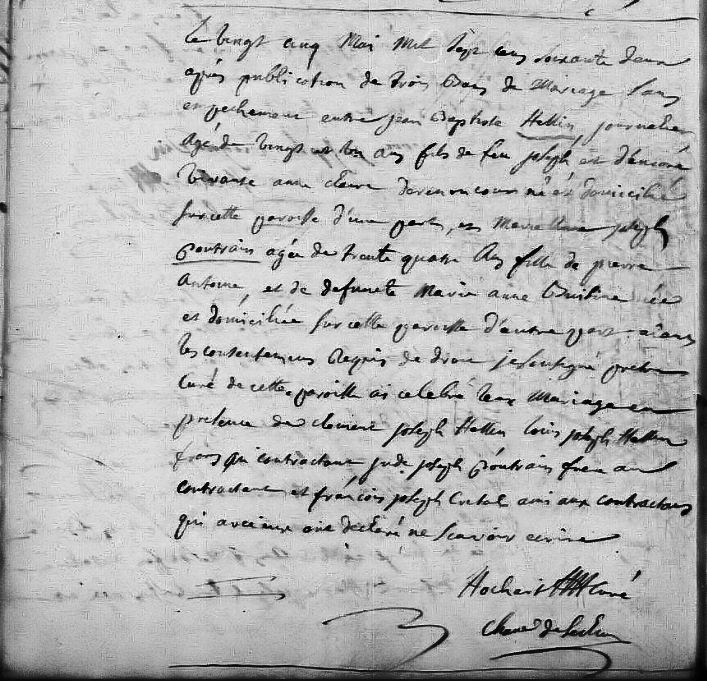 Le vingt cinq Mai Mil Sept cens soixante deux
après publication de trois Bans de Mariage sans
empechement entre jean Baptiste Hallin journalier
agé de vingt et un ans fils de feu joseph et d'encore
vivante anne claire né et domicilié
sur cette paroisse d'une part, et Marie Anne joseph
poutrain agée de trente quatre Ans fille de pierre
Antoine et de defuncte Marie anne née
et domiciliée sur cette paroisse d'autre part aians
les consentemens Requis de droit je soussigné pretre
Curé de cette paroisse ai celebré leur Mariage en
presence de clement joseph Hallin louis joseph Hallin
frere au contractant jude joseph poutrain frere au
contractant et françois joseph ami aux contractans
qui avec eux ont declaré ne scavoir ecrire
Curé